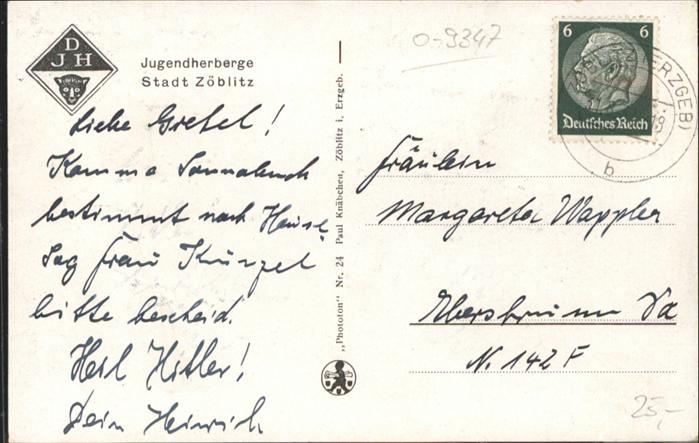 D
J H
Jugendherberge
Stadt Zöblitz
Liebe Gretel!
Komme Sonnabend
bestimmt nach Hause,
Sag Frau Künzel
bitte bescheid.
Heil Hitler!
Dein Heinrich
„Phototon“ Nr. 24 Paul Knäbchen, Zöblitz i. Erzgeb.
0-9347
6 6
Deutsches Reich
(ERZGEB)
b
Fräulein
Margarete Wappler
Ebersbrunn Sa
N. 142 F
25,-